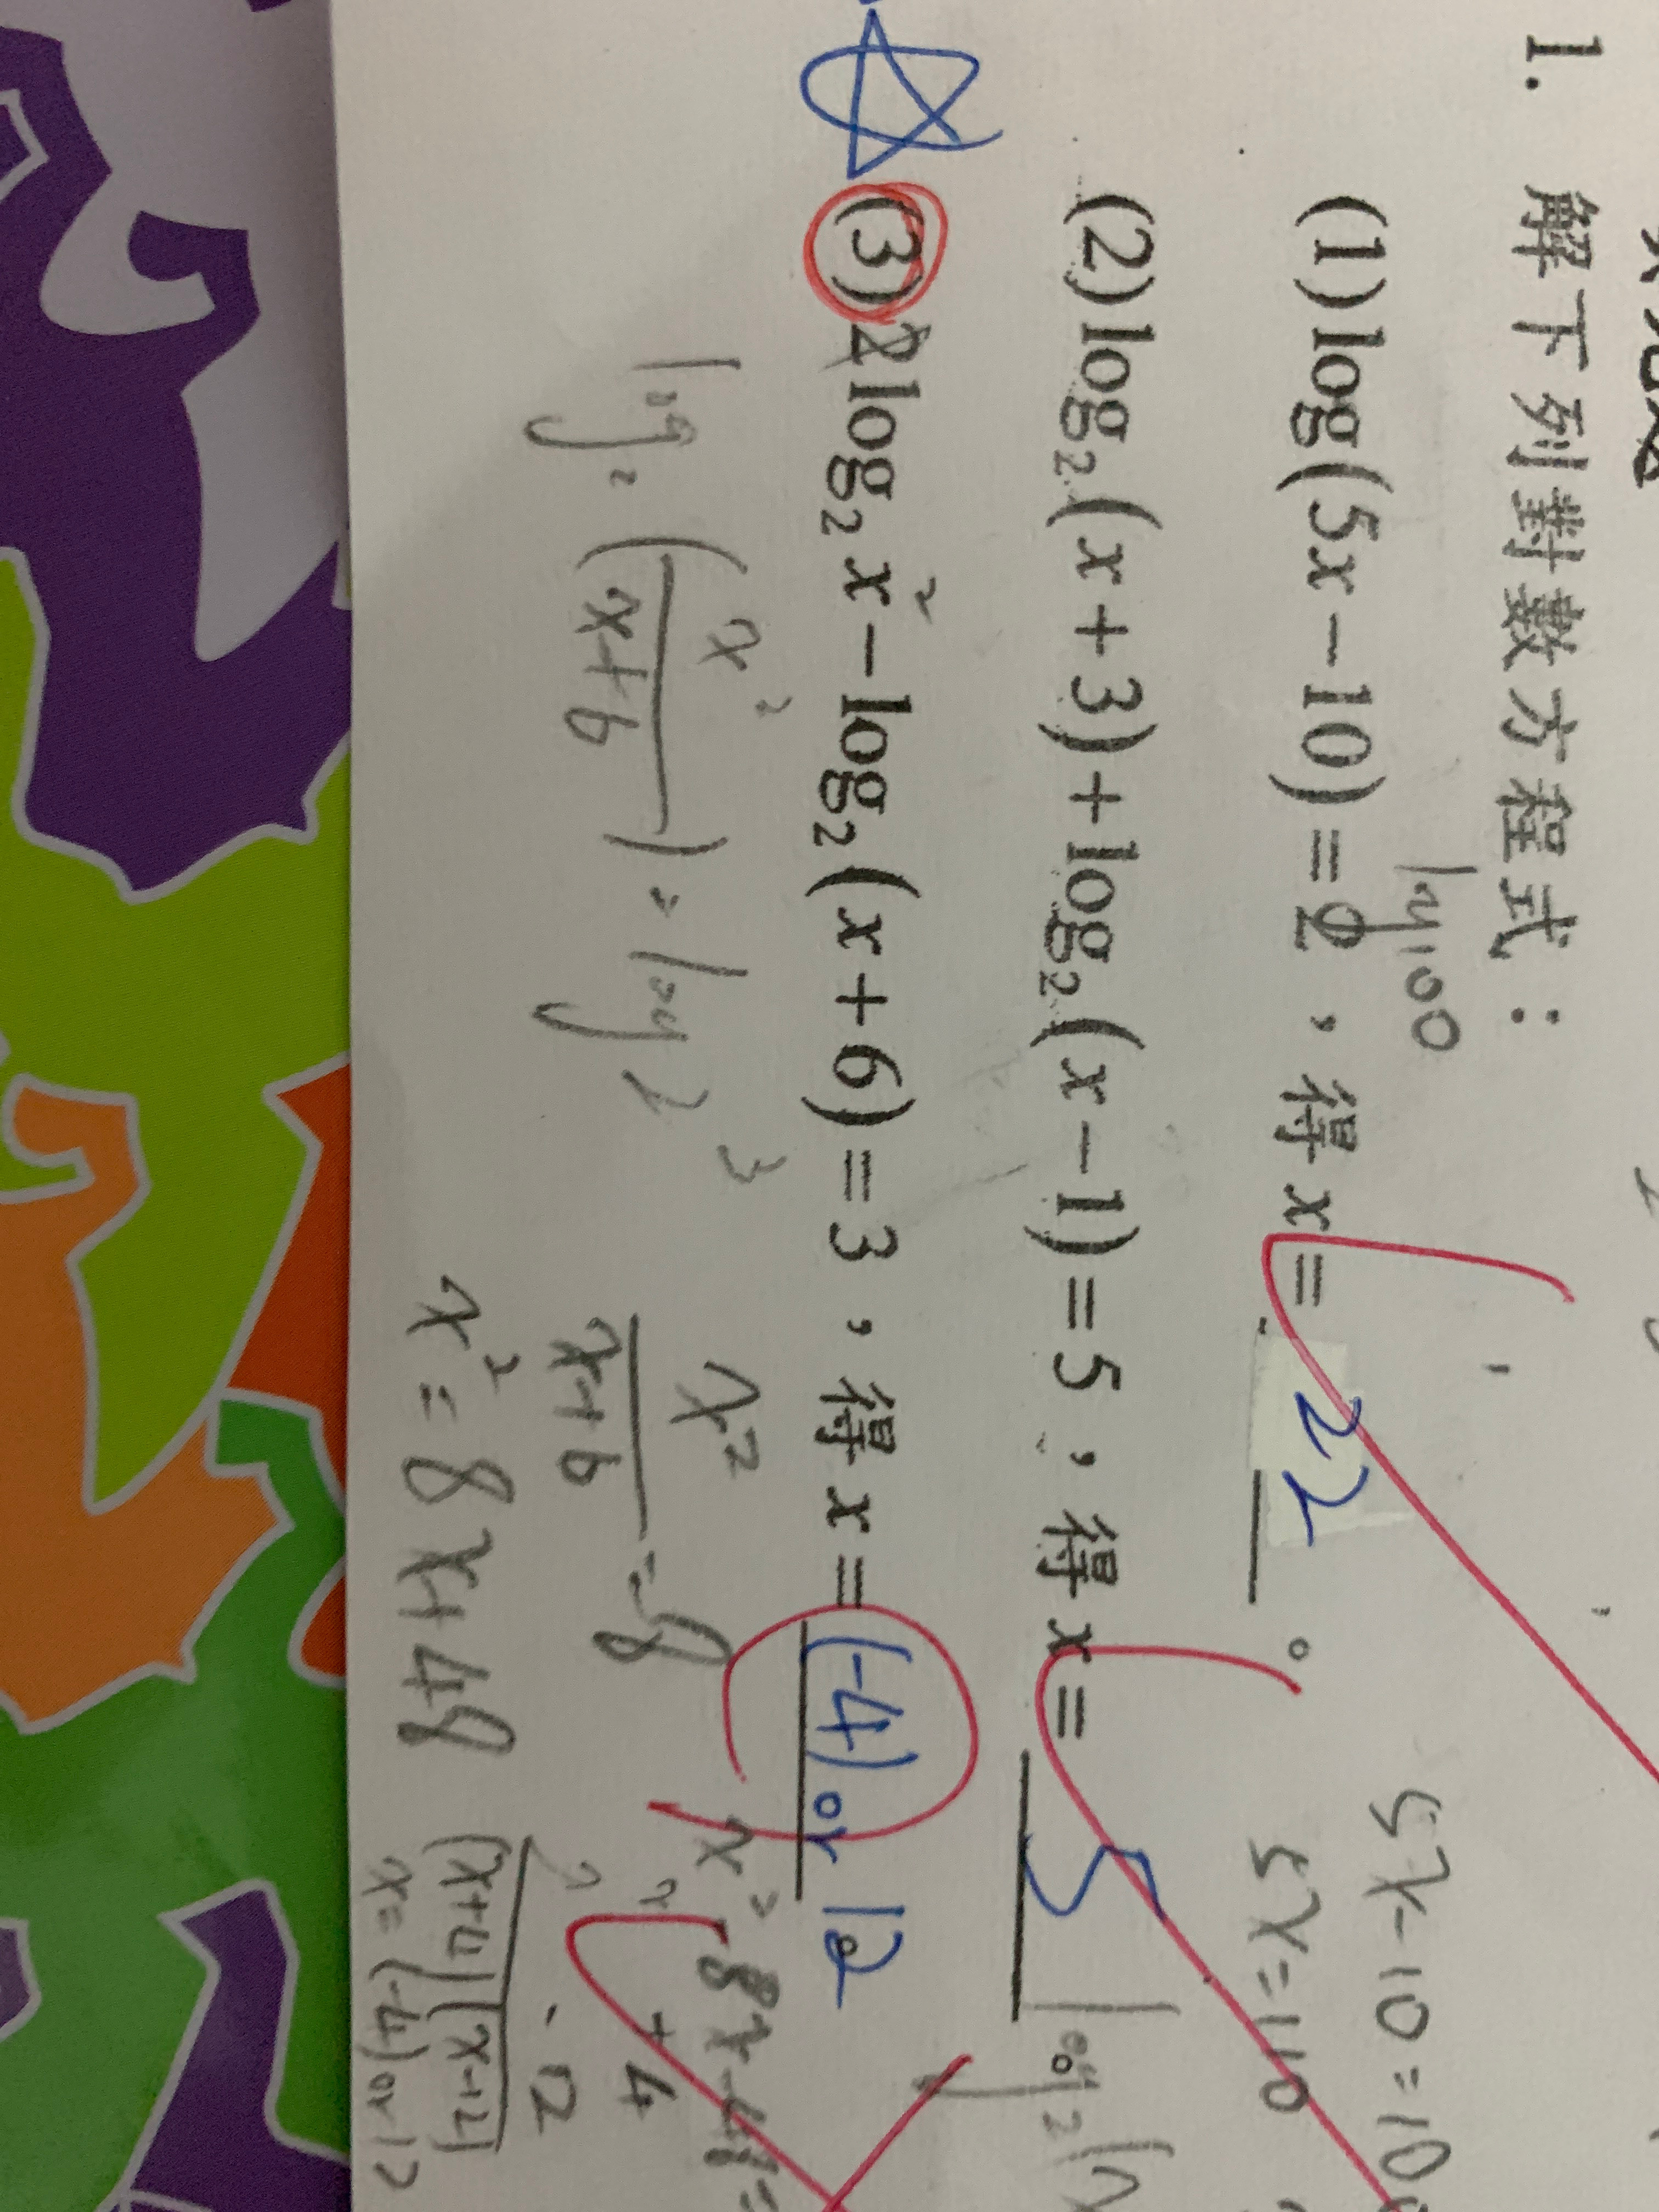 1. 解下列對數方程式：
log 100
(1) log(5x－10)＝2，得x＝ 22 。
5x-10=100
5x=110
(2) log₂(x＋3)＋log₂(x－1)＝5，得x＝ 5
log₂(
(3) 2log₂x²－log₂(x＋6)＝3，得x＝ (-4) or 12
log₂(x²/(x+6))=log 2³
x²/(x+6)=8
x²=8x+48
x²-8x-48=
x +4
x -12
(x+4)(x-12)
x=(-4) or 12